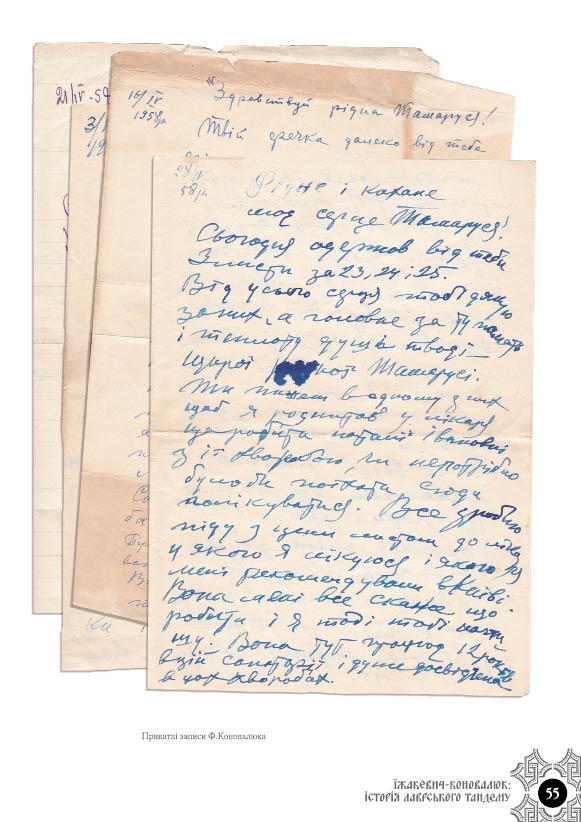 21/IV-59
16/IV
1958р.
"Здравствуй рідна Тамаруся!
Твій гречка далеко від тебе
3/
28/IV
58р.
Рідне і кохане
моє серце Тамаруся!
Сьогодня одержав від тебе
3 листи за 23, 24 і 25.
Від усього серця тобі дякую
за них, а головне за ту память
і теплоту душі твоєї
щирої Тамарусі.
Ти пишеш в одному з них
щоб я розпитав у лікаря
що робити Наталі Івановні
з її хворобою, чи непотрібно
було би поїхати сюди
полікуватися. Все зроблю
піду з цим листом до ліка
у якого я лікуюся і якого
мені рекомендували в Києві.
Вона мені все скаже що
робити і я тоді тобі напи
шу. Вона тут працює 12 років
в цій санаторії і дуже досвідчена
в цих хворобах.
Приватні записи Ф.Коновалюка
ЇЖАКЕВИЧ-КОНОВАЛЮК:
ІСТОРІЯ ЛАВРСЬКОГО ТАНДЕМУ
55